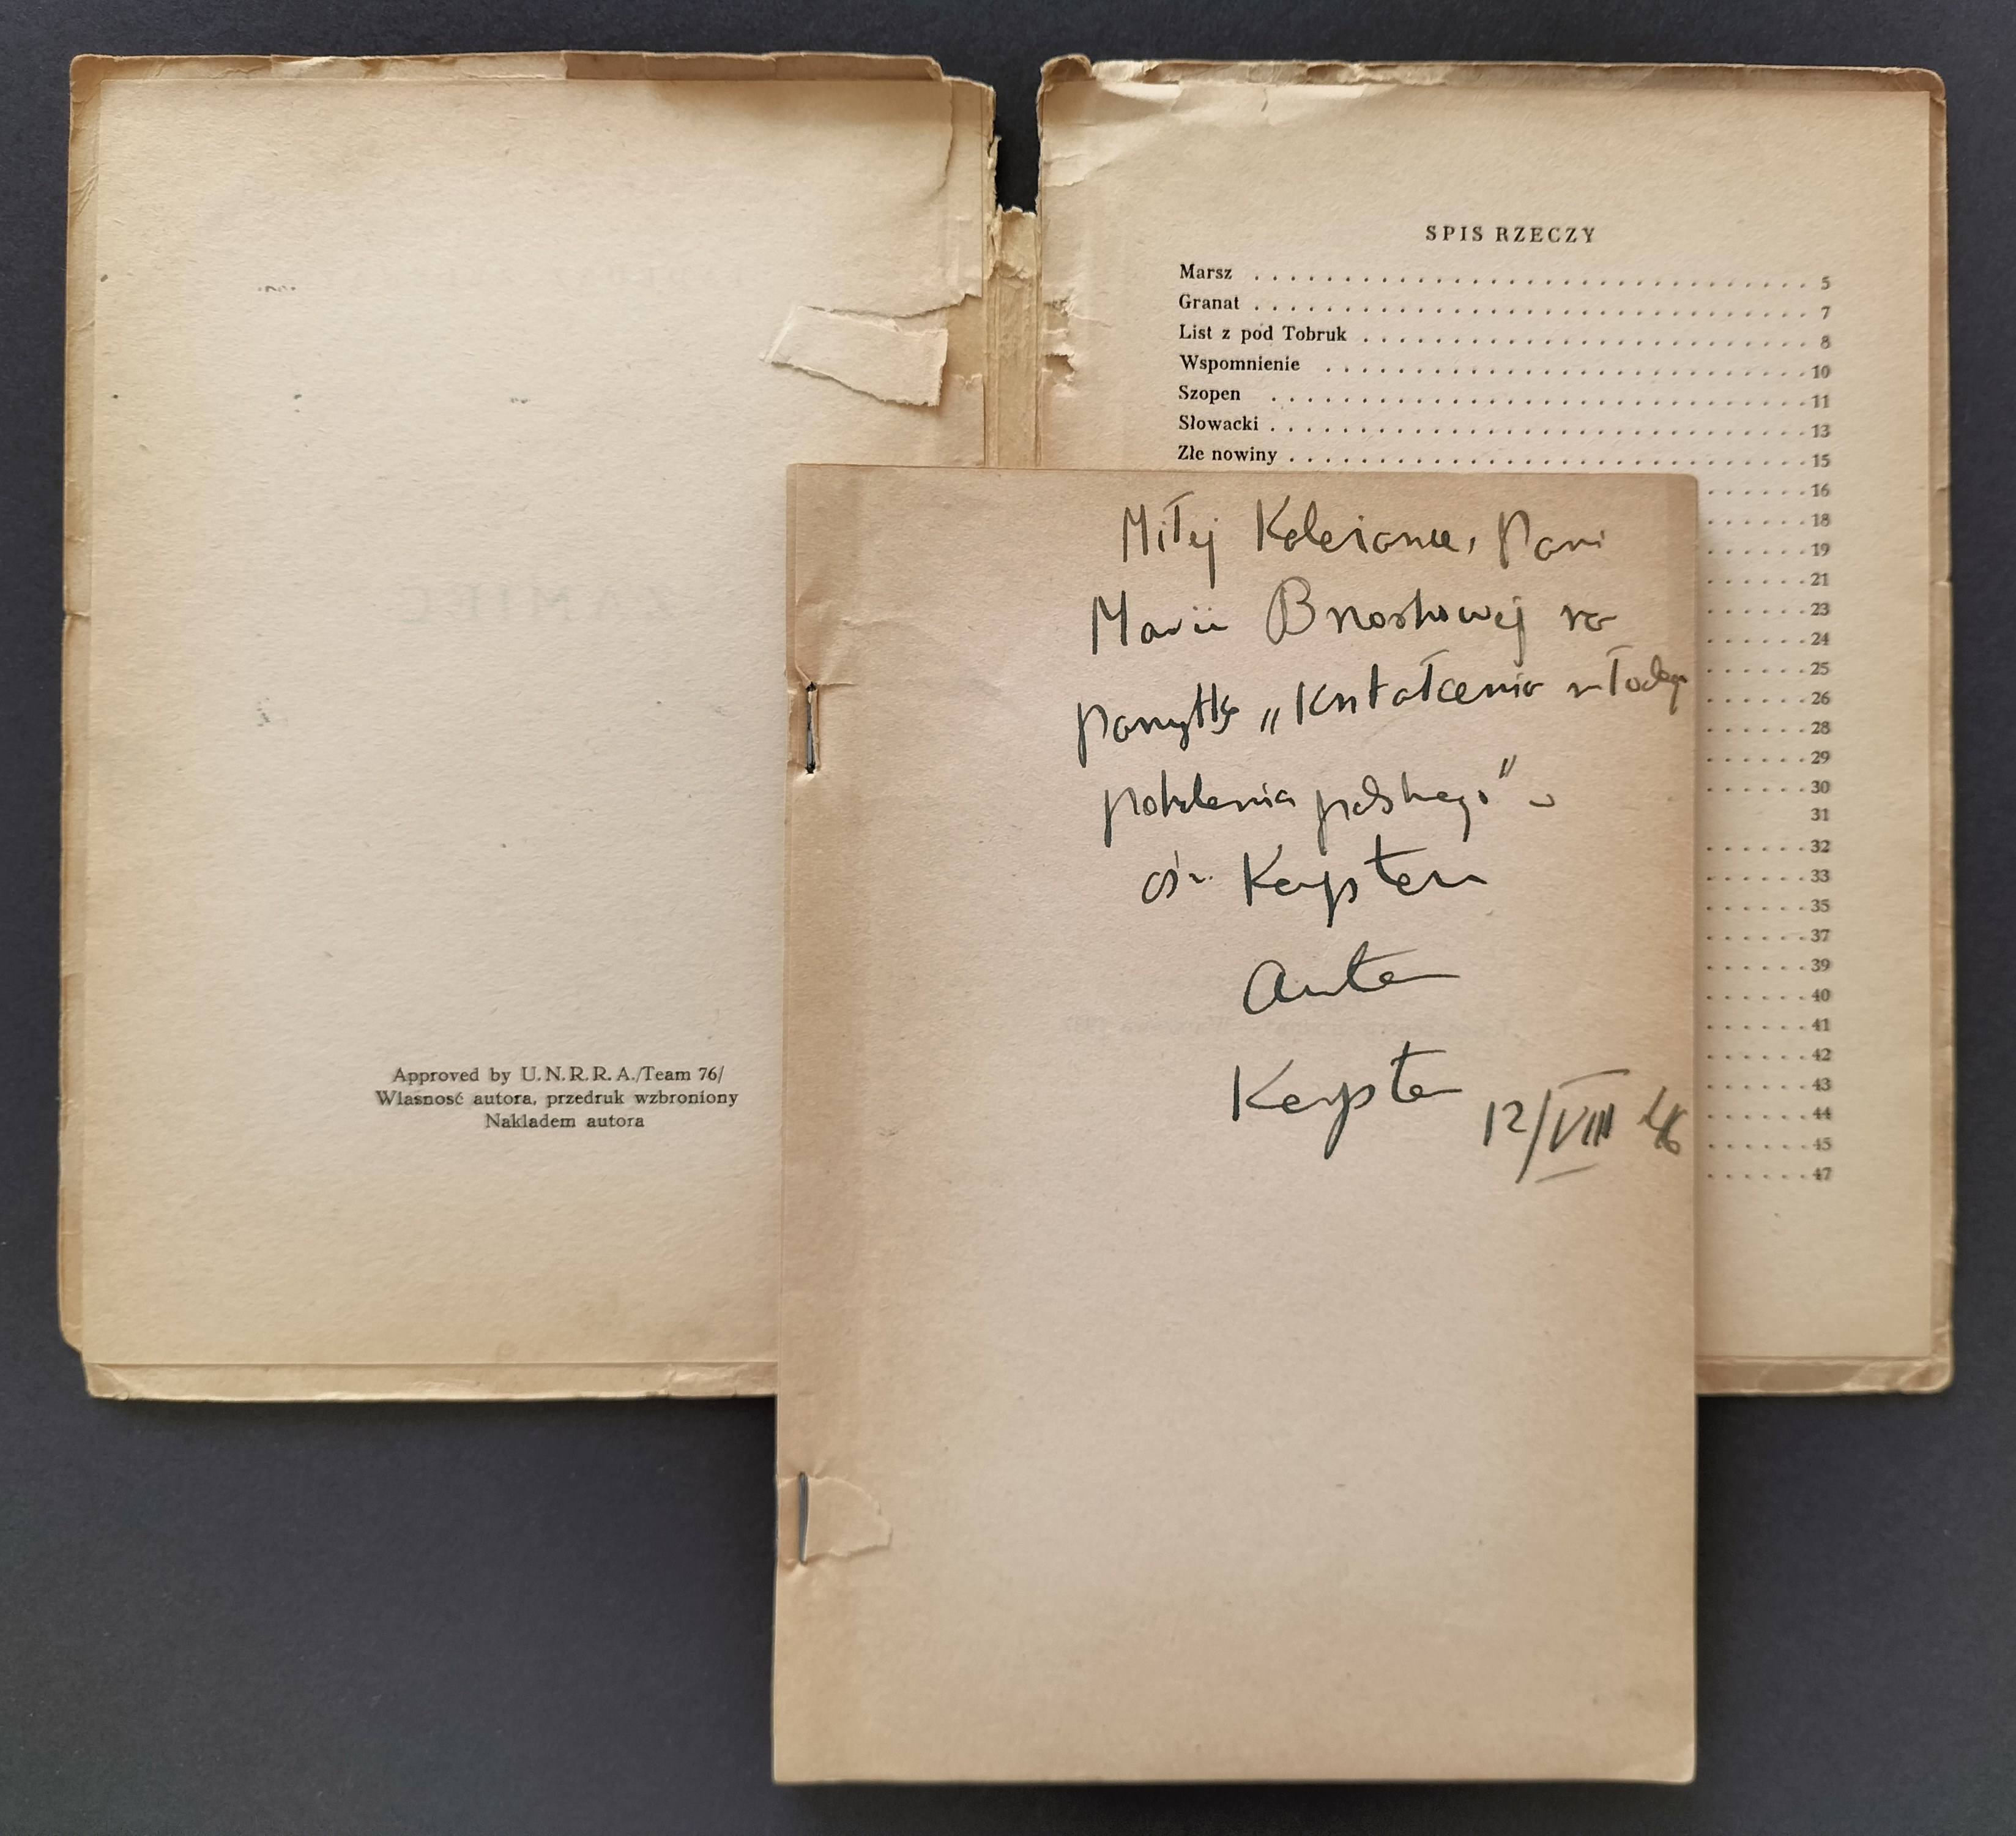 Approved by U.N.R.R.A./Team 76/
Własność autora, przedruk wzbroniony
Nakładem autora
SPIS RZECZY
Marsz 5
Granat 7
List z pod Tobruk 8
Wspomnienie 10
Szopen 11
Słowacki 13
Złe nowiny 15
16
18
19
21
23
24
25
26
28
29
30
31
32
33
35
37
39
40
41
42
43
44
45
47
Miłej Koleżance, Pani
Marii na
pamiątkę „Kształcenia młodego
pokolenia polskiego" w
12/VIII 46